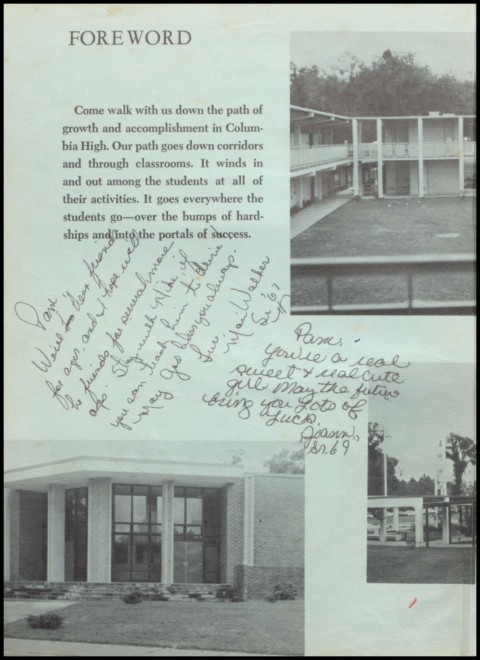 FOREWORD
Come walk with us down the path of
growth and accomplishment in Colum-
bia High. Our path goes down corridors
and through classrooms. It winds in
and out among the students at all of
their activities. It goes everywhere the
students go—over the bumps of hard-
ships and into the portals of success.
Pam,
We've been friends
for ages, and I hope we'll
be friends for several more
ago. Stay with Mike, if
you can teach him to drive!
May God bless you always.
Luv,
Mari Walker
Sr. '67
Pam,
you're a real
sweet & real cute
girl May the future
bring you Lots of
Luck.
Joann,
Sr. 69